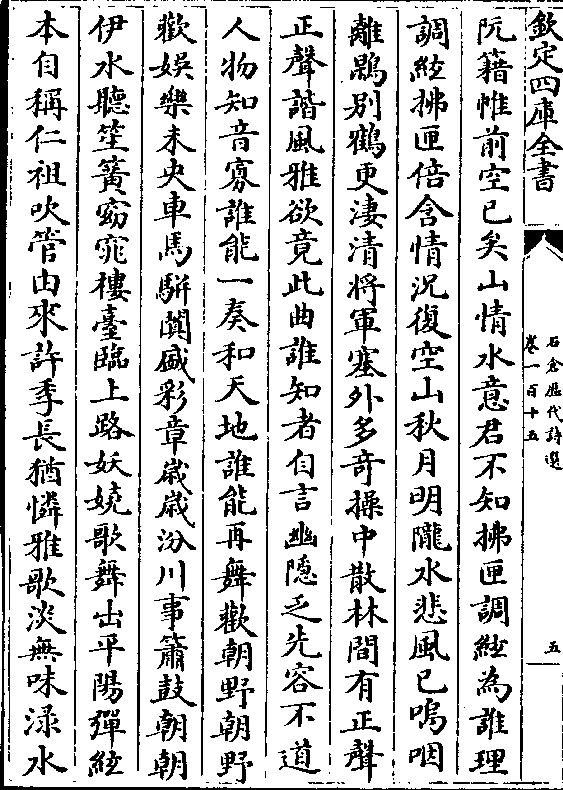 欽定四庫全書
石倉歴代詩選
卷一百十五
五
阮籍帷前空已矣山情水意君不知拂匣調絃為誰理
調絃拂匣倍含情況復空山秋月明隴水悲風已嗚咽
離鵾别鶴更淒清將軍塞外多奇操中散林間有正聲
正聲諧風雅欲竟此曲誰知者自言幽隠乏先容不道
人物知音寡誰能一奏和天地誰能再舞歡朝野朝野
歡娯樂未央車馬駢闐盛彩章歳歳汾川事簫鼓朝朝
伊水聽笙簧窈窕樓臺臨上路妖嬈歌舞出平陽彈絃
本自稱仁祖吹管由來許季長猶憐雅歌淡無味渌水